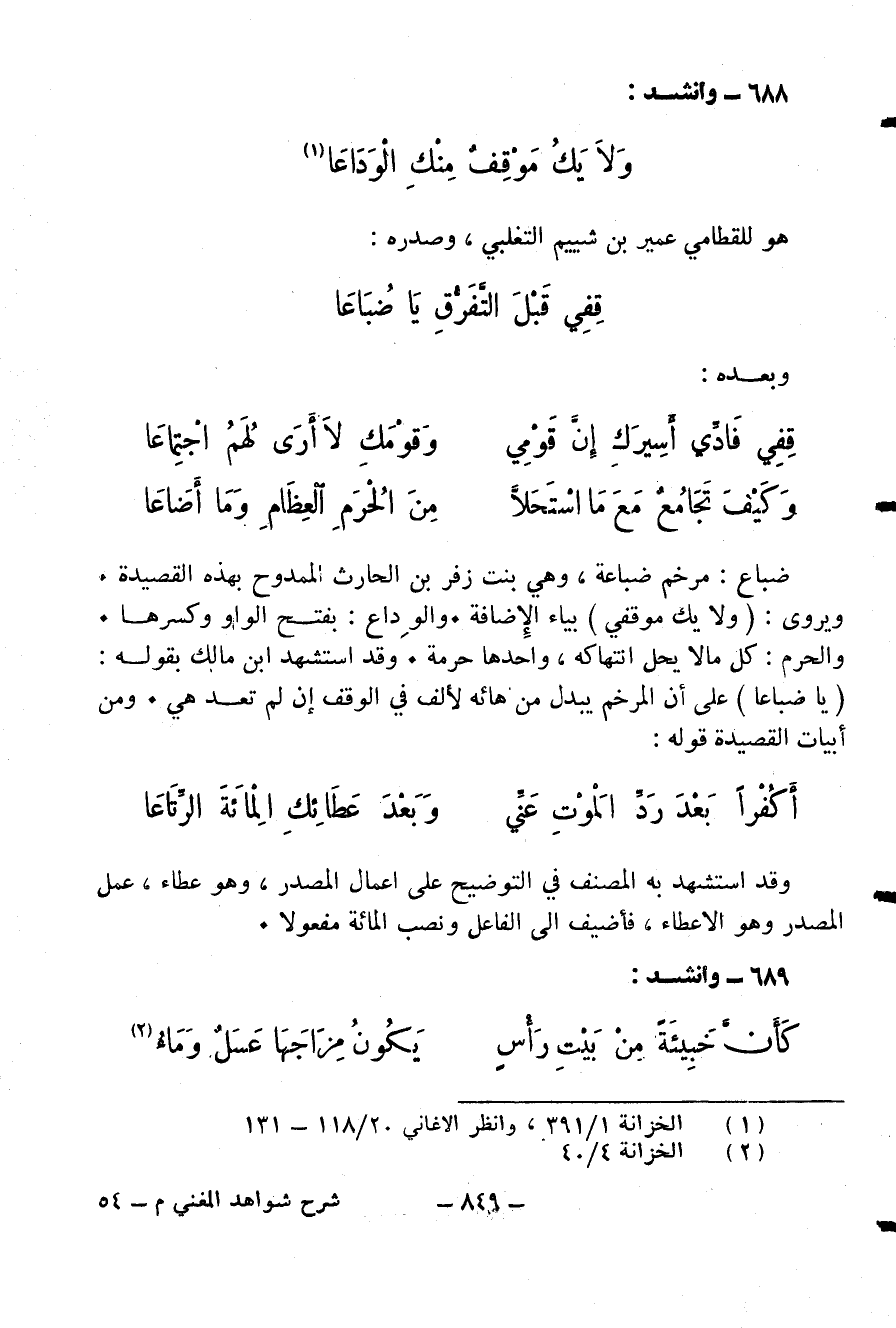 ٦٨٨ ـ وانشـــد :
وَلاَ يَكُ مَوْقِفٌ مِنْكِ الْوَدَاعَا(١)
هو للقطامي عمير بن شييم التغلبي ، وصدره :
قِفِي قَبْلَ التَّفَرُّقِ يَا ضُبَاعَا
وبعـــده :
قِفِي فَادِّي أَسِيرَكِ إِنَّ قَوْمِي وَقَوْمَكِ لاَ أَرَى لَهُمُ اجْتِمَاعَا
وَكَيْفَ تَجَامُعٌ مَعَ مَا اسْتَحَلاَّ مِنَ الْحُرَمِ الْعِظَامِ وَمَا أَضَاعَا
ضباع : مرخم ضباعة ، وهي بنت زفر بن الحارث الممدوح بهذه القصيدة ٠
ويروى : ( ولا يك موقفي ) بياء الإضافة ٠ والوداع : بفتـــح الواو وكسرهـــا ٠
والحرم : كل مالا يحل انتهاكه ، واحدها حرمة ٠ وقد استشهد ابن مالك بقولـــه :
( يا ضباعا ) على أن المرخم يبدل من هائه لألف في الوقف إن لم تعـــد هي ٠ ومن
أبيات القصيدة قوله :
أَكُفْراً بَعْدَ رَدِّ الْمَوْتِ عَنِّي وَبَعْدَ عَطَائِكِ الْمِائَةَ الرِّتَاعَا
وقد استشهد به المصنف في التوضيح على اعمال المصدر ، وهو عطاء ، عمل
المصدر وهو الاعطاء ، فأضيف الى الفاعل ونصب المائة مفعولا ٠
٦٨٩ ـ وانشـــد :
كَأَنَّ خَبِيئَةً مِنْ بَيْتِ رَأْسٍ يَكُونُ مِزَاجَهَا عَسَلٌ وَمَاءُ(٢)
(١) الخزانة ٣٩١/١ ، وانظر الاغاني ١١٨/٢٠ ـ ١٣١
(٢) الخزانة ٤٠/٤
ـ ٨٤٩ ـ شرح شواهد المغني م ـ ٥٤